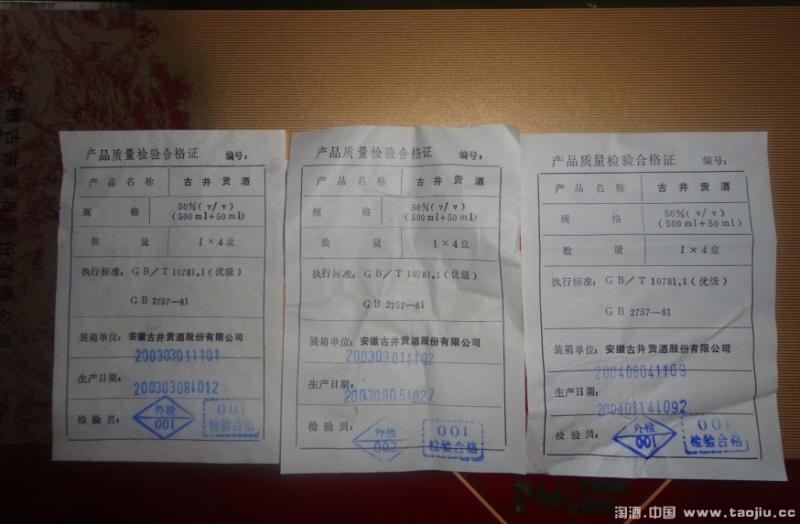 安徽古井贡酒股份有限公司
产品质量检验合格证 编号:
产品名称 古井贡酒
规格 50%(v/v)
(500ml+50ml)
数量 1×4盒
执行标准: GB/T 10781.1(优级)
GB 2757—81
装箱单位: 安徽古井贡酒股份有限公司
200303011101
生产日期:
200303081012
检验员: 外检
001
001
检验合格
产品质量检验合格证 编号:
产品名称 古井贡酒
规格 50%(v/v)
(500ml+50ml)
数量 1×4盒
执行标准: GB/T 10781.1(优级)
GB 2757—81
装箱单位: 安徽古井贡酒股份有限公司
生产日期:
检验员: 外检
002
001
检验合格
产品质量检验合格证 编号:
产品名称 古井贡酒
规格 50%(v/v)
(500ml+50ml)
数量 1×4盒
执行标准: GB/T 10781.1(优级)
GB 2757—81
装箱单位: 安徽古井贡酒股份有限公司
生产日期:
检验员: 外检
001
001
检验合格
淘酒.中国 www.taojiu.cc